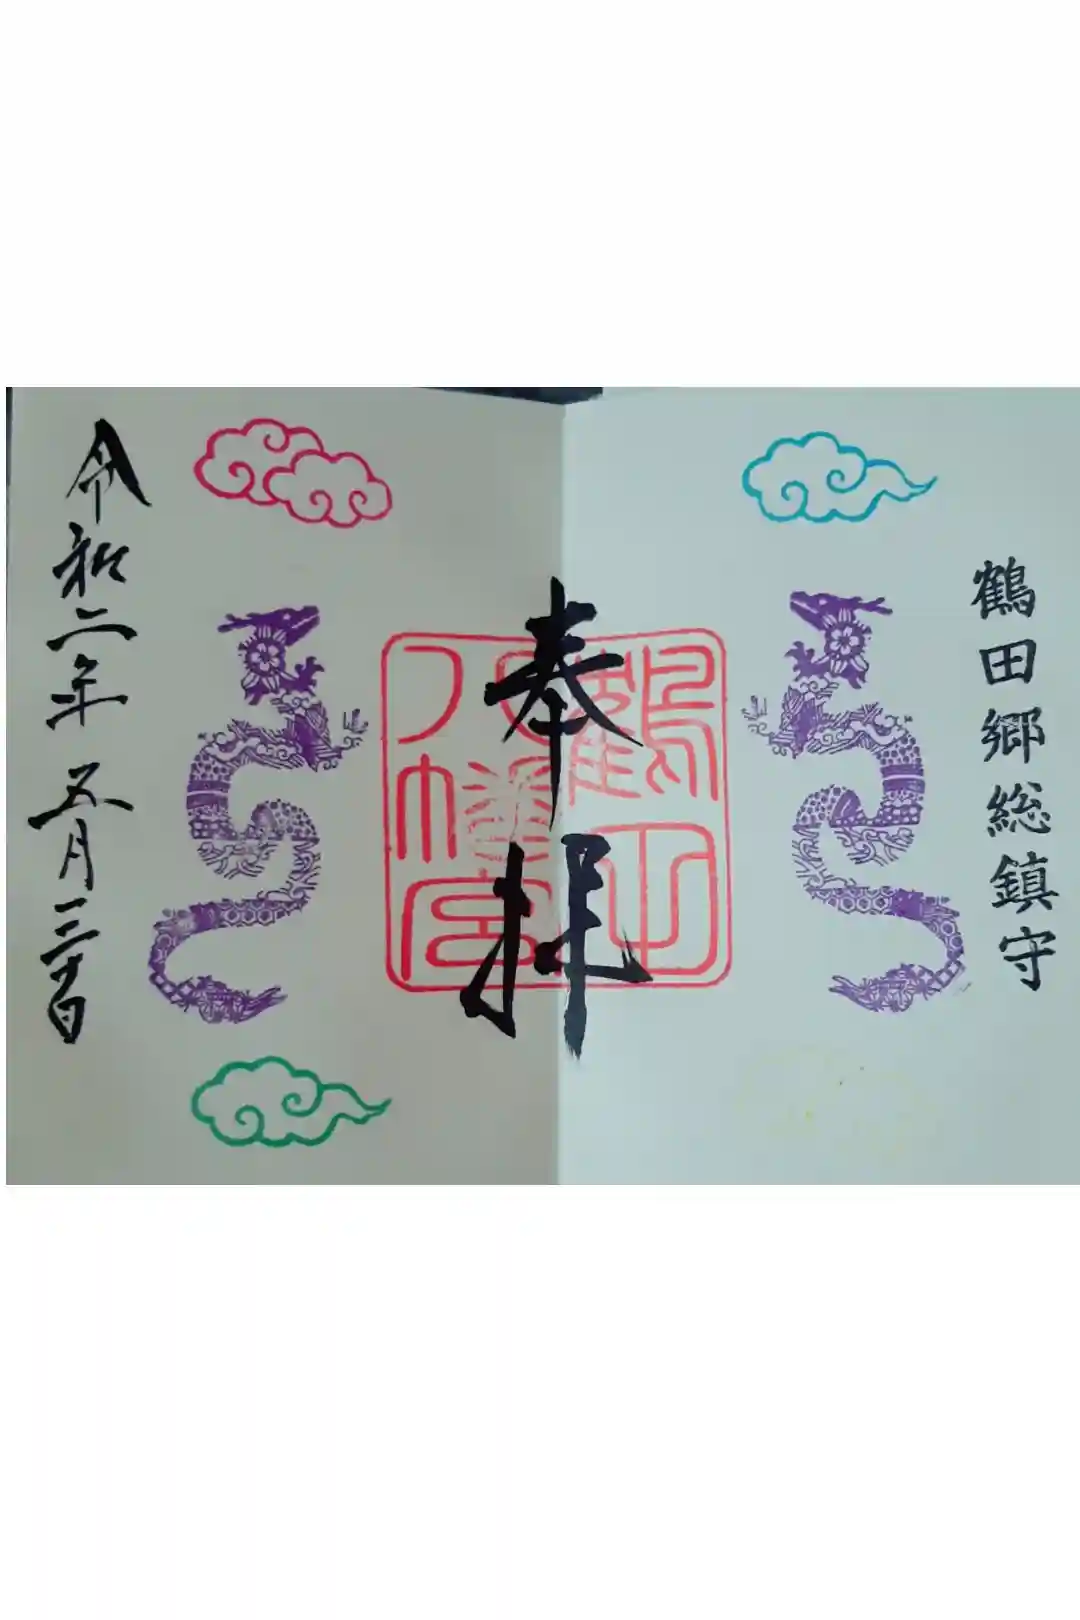 鶴田郷総鎮守
奉拝
鶴
八幡宮
令和二年 五月三十日